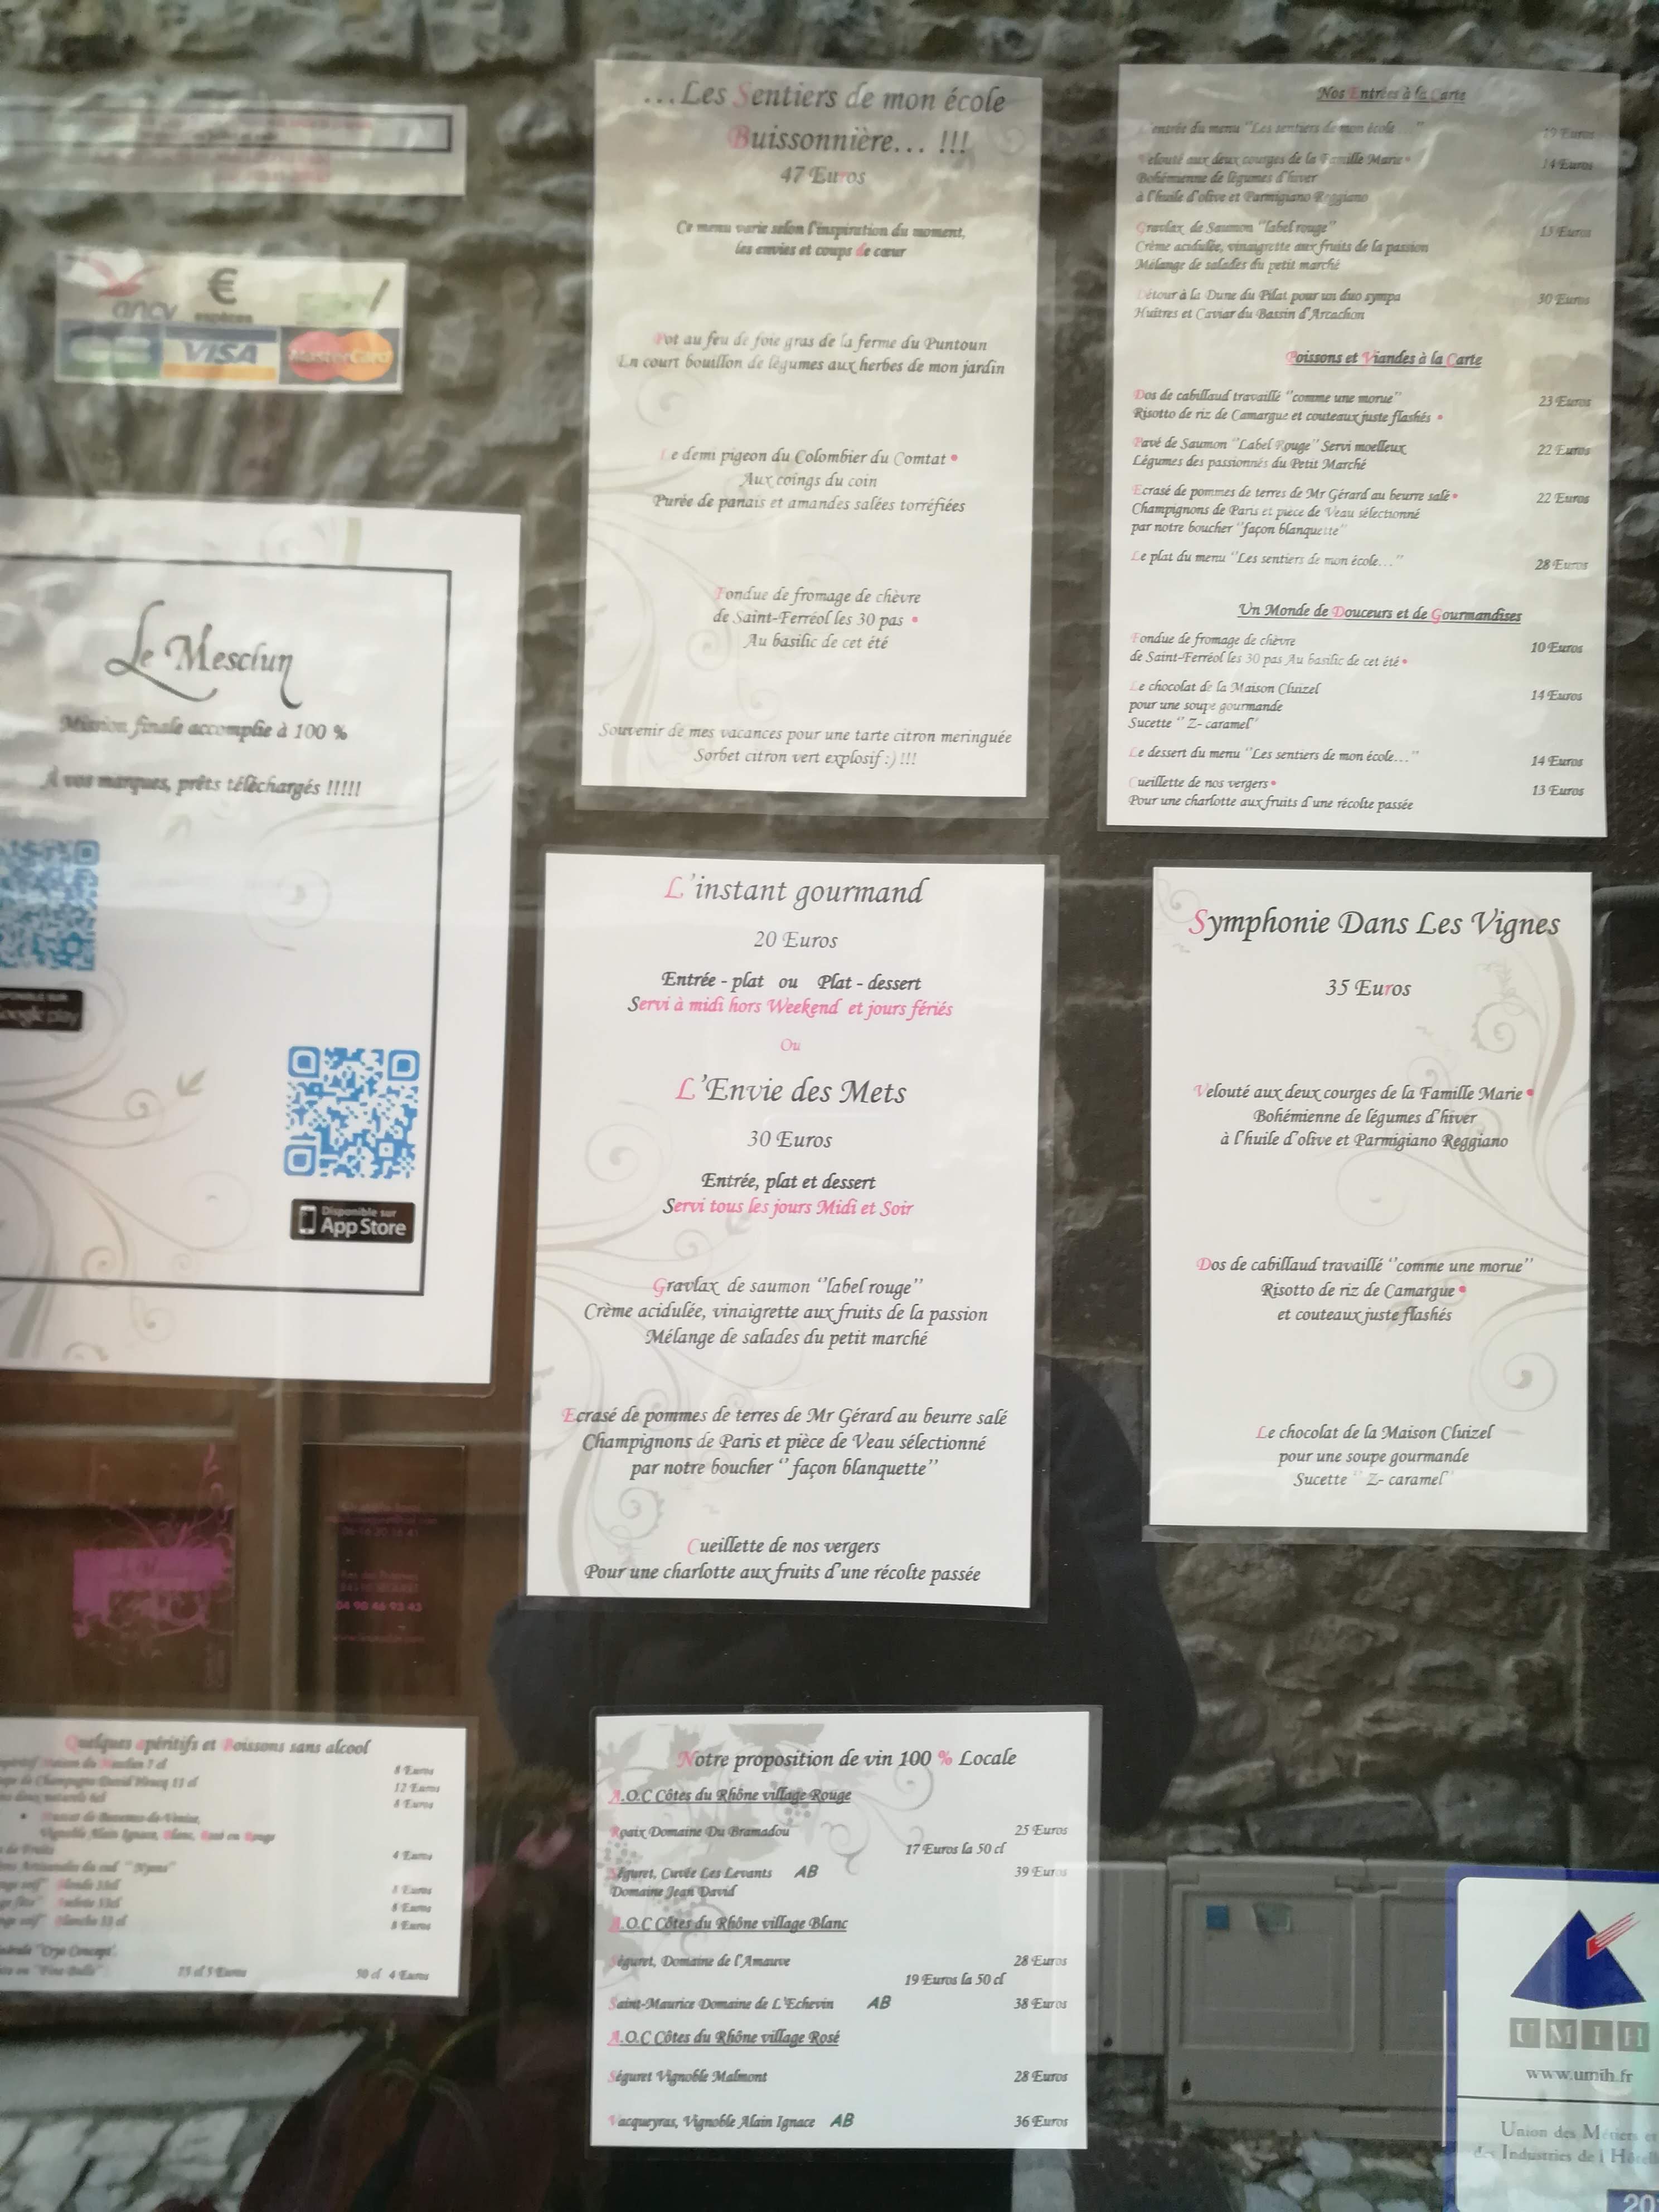 ...Les Sentiers de mon école
Buissonnière... !!!
47 Euros
Ce menu varie selon l'inspiration du moment,
les envies et coups de cœur
Pot au feu de foie gras de la ferme du Puntoun
En court bouillon de légumes aux herbes de mon jardin
Le demi pigeon du Colombier du Comtat •
Aux coings du coin
Purée de panais et amandes salées torréfiées
Fondue de fromage de chèvre
de Saint-Ferréol les 30 pas •
Au basilic de cet été
Souvenir de mes vacances pour une tarte citron meringuée
Sorbet citron vert explosif :) !!!
Nos Entrées à la Carte
L'entrée du menu "Les sentiers de mon école..." 19 Euros
Velouté aux deux courges de la Famille Marie • 14 Euros
Bohémienne de légumes d'hiver
à l'huile d'olive et Parmigiano Reggiano
Gravlax de Saumon "label rouge" 15 Euros
Crème acidulée, vinaigrette aux fruits de la passion
Mélange de salades du petit marché
Détour à la Dune du Pilat pour un duo sympa 30 Euros
Huîtres et Caviar du Bassin d'Arcachon
Poissons et Viandes à la Carte
Dos de cabillaud travaillé "comme une morue" 23 Euros
Risotto de riz de Camargue et couteaux juste flashés •
Pavé de Saumon "Label Rouge" Servi moelleux 22 Euros
Légumes des passionnés du Petit Marché
Ecrasé de pommes de terres de Mr Gérard au beurre salé • 22 Euros
Champignons de Paris et pièce de Veau sélectionné
par notre boucher "façon blanquette"
Le plat du menu "Les sentiers de mon école..." 28 Euros
Un Monde de Douceurs et de Gourmandises
Fondue de fromage de chèvre 10 Euros
de Saint-Ferréol les 30 pas Au basilic de cet été •
Le chocolat de la Maison Cluizel 14 Euros
pour une soupe gourmande
Sucette " Z- caramel"
Le dessert du menu "Les sentiers de mon école..." 14 Euros
Cueillette de nos vergers • 13 Euros
Pour une charlotte aux fruits d'une récolte passée
ancv € espèces
VISA MasterCard
Le Mesclun
Mission finale accomplie à 100 %
À vos marques, prêts téléchargés !!!!!
Google play
Disponible sur
App Store
L'instant gourmand
20 Euros
Entrée - plat ou Plat - dessert
Servi à midi hors Weekend et jours fériés
Ou
L'Envie des Mets
30 Euros
Entrée, plat et dessert
Servi tous les jours Midi et Soir
Gravlax de saumon "label rouge"
Crème acidulée, vinaigrette aux fruits de la passion
Mélange de salades du petit marché
Ecrasé de pommes de terres de Mr Gérard au beurre salé
Champignons de Paris et pièce de Veau sélectionné
par notre boucher " façon blanquette"
Cueillette de nos vergers
Pour une charlotte aux fruits d'une récolte passée
Symphonie Dans Les Vignes
35 Euros
Velouté aux deux courges de la Famille Marie •
Bohémienne de légumes d'hiver
à l'huile d'olive et Parmigiano Reggiano
Dos de cabillaud travaillé "comme une morue"
Risotto de riz de Camargue •
et couteaux juste flashés
Le chocolat de la Maison Cluizel
pour une soupe gourmande
Sucette " Z- caramel"
04 90 46 93 43
Quelques apéritifs et Boissons sans alcool
8 Euros
12 Euros
8 Euros
Vignoble Alain Ignace, Blanc, Rosé ou Rouge
4 Euros
8 Euros
8 Euros
8 Euros
15 cl 5 Euros 50 cl 4 Euros
Notre proposition de vin 100 % Locale
A.O.C Côtes du Rhône village Rouge
Roaix Domaine Du Bramadou 25 Euros
17 Euros la 50 cl
Séguret, Cuvée Les Levants AB 39 Euros
Domaine Jean David
A.O.C Côtes du Rhône village Blanc
Séguret, Domaine de l'Amauve 28 Euros
19 Euros la 50 cl
Saint-Maurice Domaine de L'Echevin AB 38 Euros
A.O.C Côtes du Rhône village Rosé
Séguret Vignoble Malmont 28 Euros
Vacqueyras, Vignoble Alain Ignace AB 36 Euros
UMIH
www.umih.fr
Union des Métiers et
des Industries de l'Hôtell
20